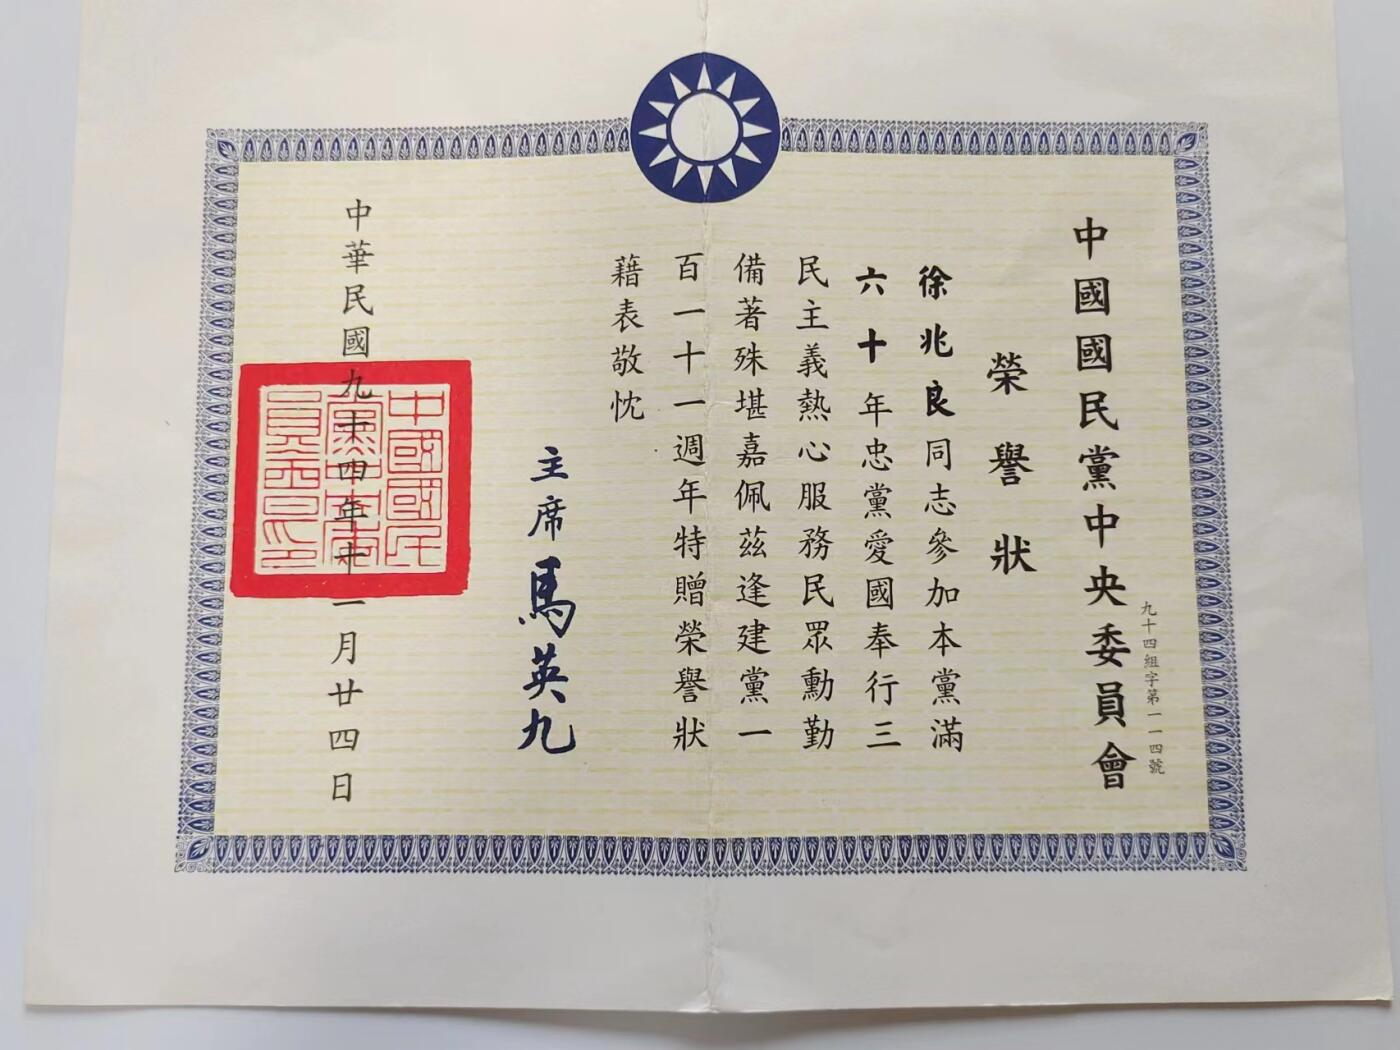 中國國民黨中央委員會
九十四組字第一一四號
榮譽狀
徐兆良同志參加本黨滿
六十年忠黨愛國奉行三
民主義熱心服務民眾勳勤
備著殊堪嘉佩茲逢建黨一
百一十一週年特贈榮譽狀
藉表敬忱
主席馬英九
中華民國九十四年十一月廿四日
中國國民
黨中央委
員會印